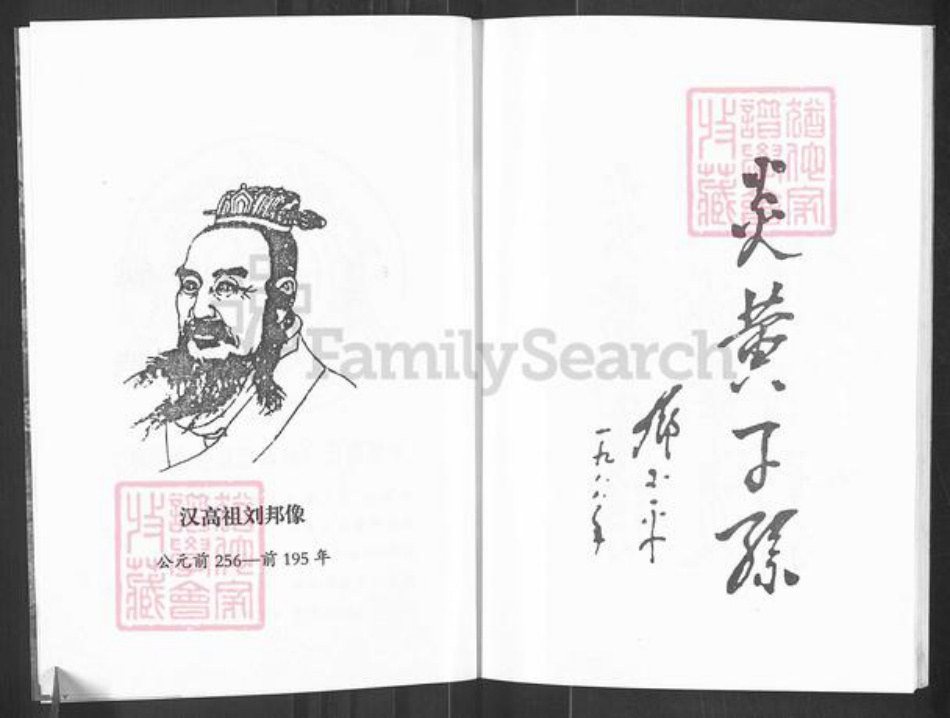 汉高祖刘邦像
公元前256—前195年
炎黄子孙
邓小平
一九八八年
FamilySearch